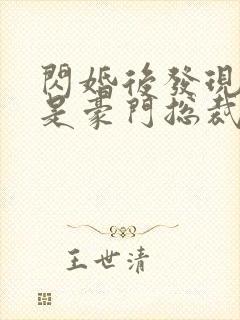 閃婚後發現
是豪門總裁
王世清